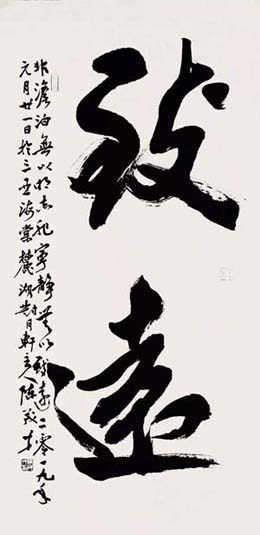 致遠
非澹泊無以明志非寧靜無以致遠二零一九年
元月廿一日於三亞海棠麓湖對月軒主人陳